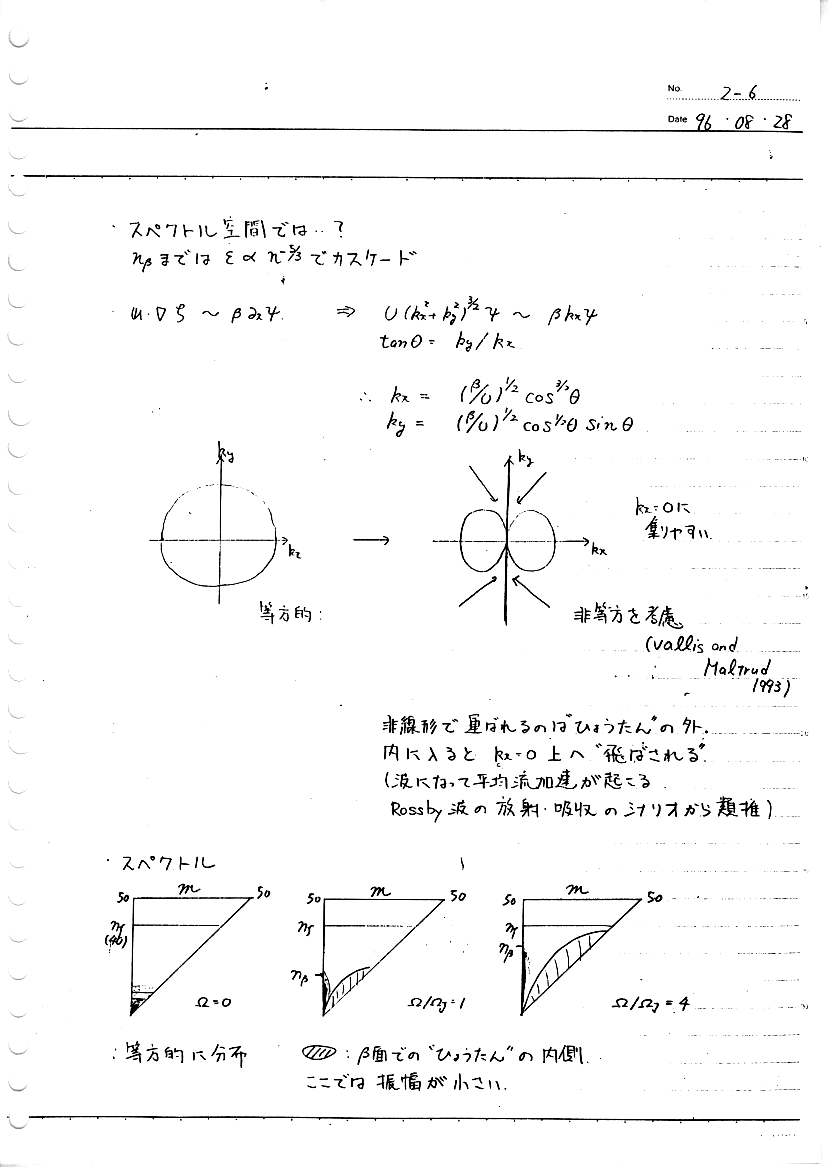 No. 2-6
Date 96・08・28
・スペクトル空間では‥?
nβまでは ε ∝ n^-5/3 でカスケード
・𝐮・∇ζ 〜 β∂xψ ⇒ U(kx²+ky²)^3/2 ψ 〜 βkxψ
tanθ = ky/kx
∴ kx = (β/U)^1/2 cos^3/2θ
ky = (β/U)^1/2 cos^1/2θ sinθ
ky
kx
等方的:
ky
kx
kx=0に
集りやすい
非等方を考慮
(Vallis and
Maltrud
1993)
非線形で運ばれるのは"ひょうたん"の外.
内に入ると kx=0 上へ "飛ばされる"
(波になって平均流加速が起こる
Rossby 波の放射・吸収のシナリオから類推)
・スペクトル
50 m 50
nf
(40)
Ω=0
50 m 50
nf
nβ
Ω/ΩJ=1
50 m 50
nf
nβ
Ω/ΩJ=4
:等方的に分布
:β面での"ひょうたん"の内側.
ここでは振幅が小さい.